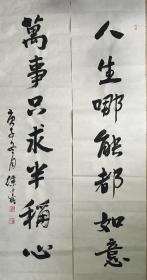 人生哪能都如意
萬事只求半稱心
庚子冬月